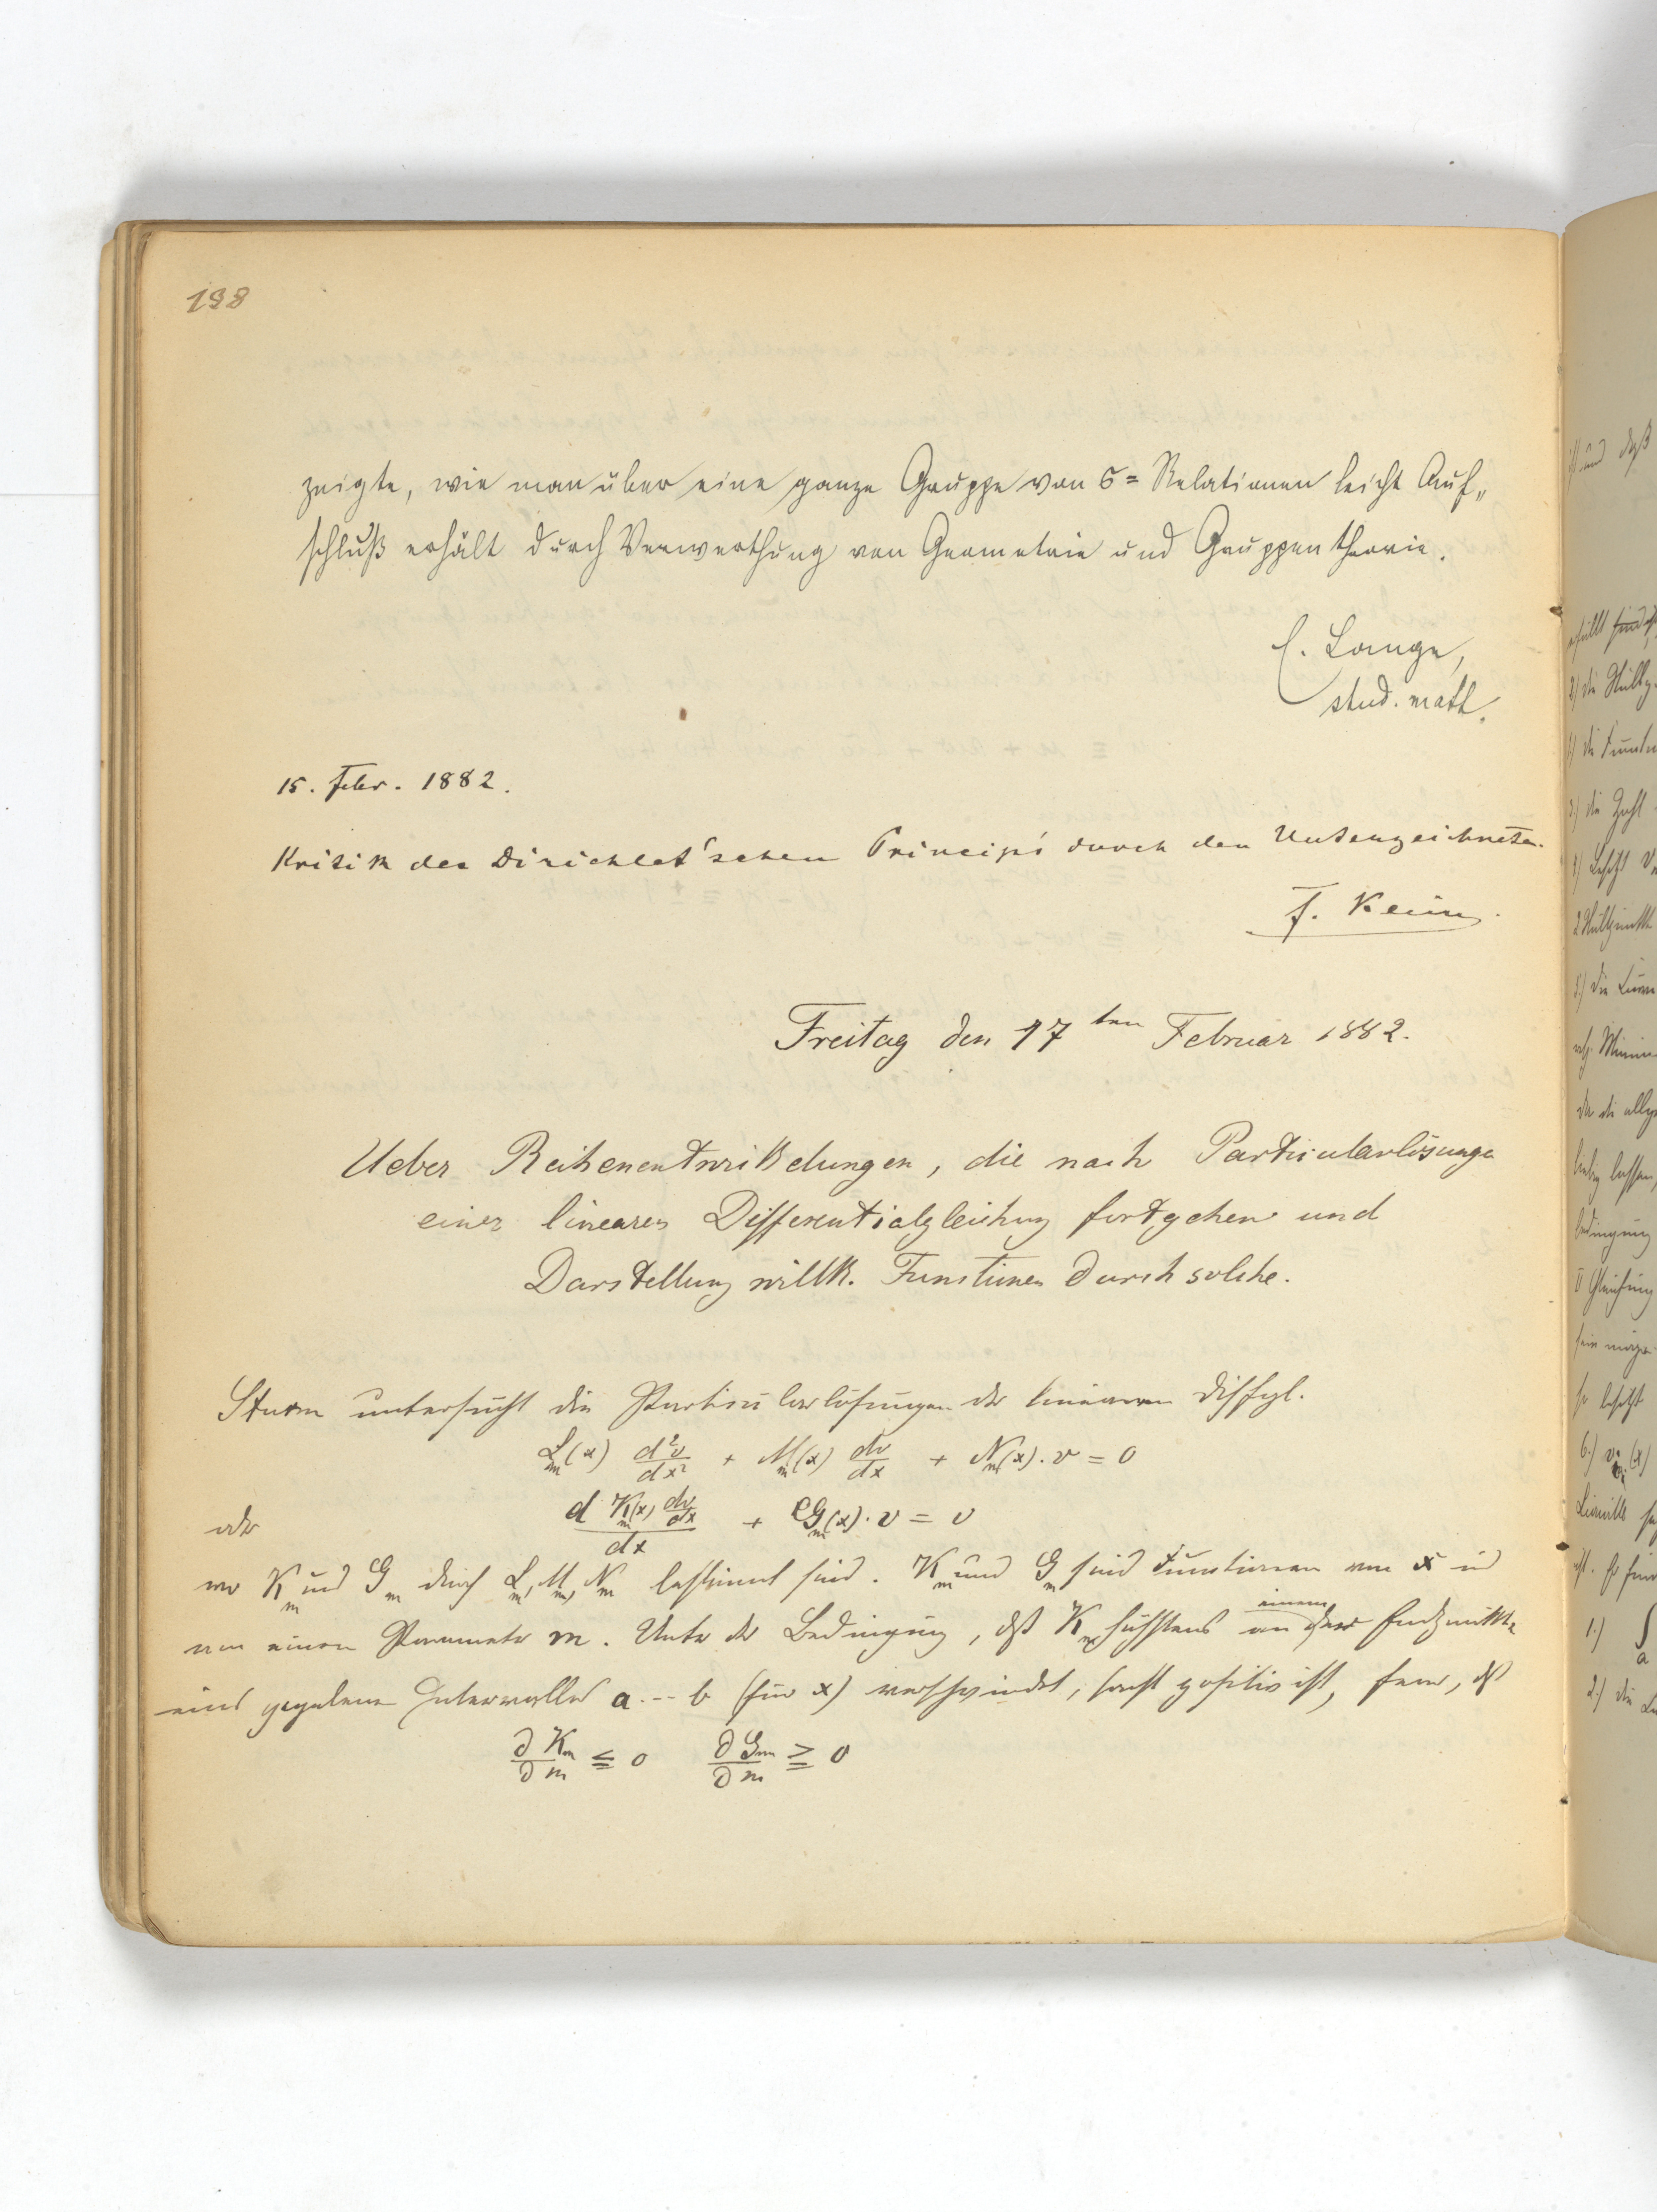 198
zeigte, wie man über eine ganze Gruppe von σ= Relationen leicht Auf„
schluß erhält durch Verwerthung von Geometrie und Gruppentheorie.
E. Lange,
stud. math.
15. Febr. 1882.
Kritik des Dirichlet'schen Princips durch den Unterzeichneten.
F. Klein.
Freitag den 17ten Februar 1882.
Ueber Reihenentwickelungen, die nach Particularlösungen
einer linearen Differentialgleichung fortgehen und
Darstellung willk. Functionen durch solche.
Sturm untersucht die Particularlösungen der linearen Diffgl.
L_m(x) d²v/dx² + M_m(x) dv/dx + N_m(x). v = 0
oder
d K_m(x) dv/dx / dx + G_m(x). v = 0
wo K_m und G_m durch L_m, M_m, N_m bestimmt sind. K_m und G_m sind Functionen von x und
von einem Parameter m. Unter der Bedingung, daß K_m höchstens an einem der Endpunkte
eines gegebenen Intervalles a --- b (für x) verschwindet, sonst positiv ist, ferner, daß
∂K_m/∂m ≦ 0 ∂G_m/∂m ≧ 0